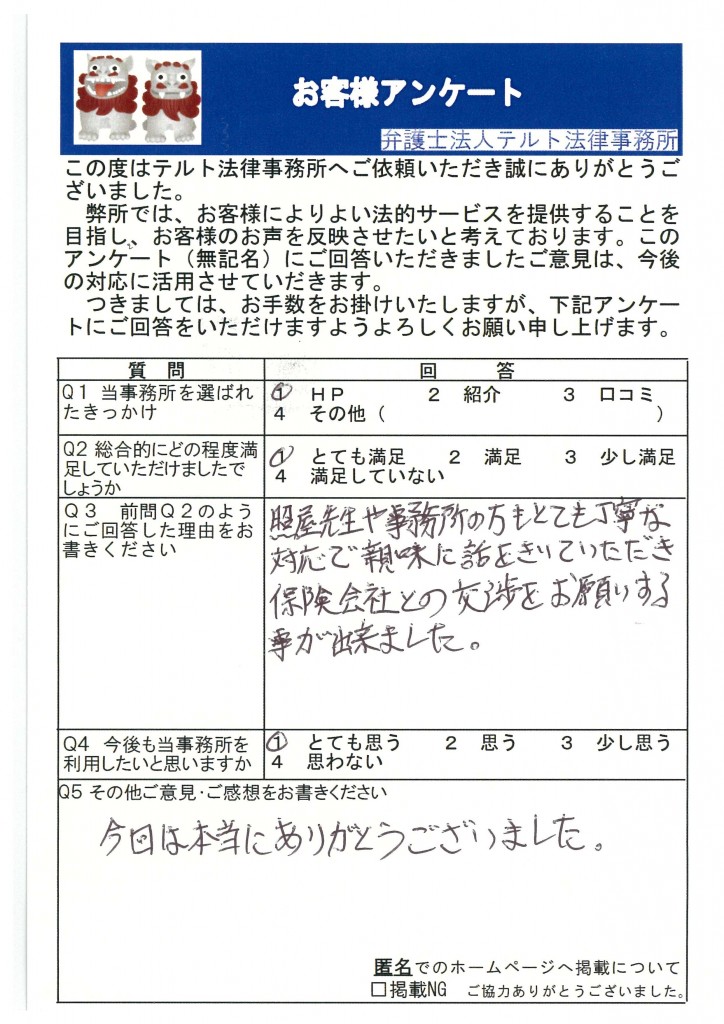 お客様アンケート
弁護士法人テルト法律事務所
この度はテルト法律事務所へご依頼いただき誠にありがとうご
ざいました。
弊所では、お客様によりよい法的サービスを提供することを
目指し、お客様のお声を反映させたいと考えております。この
アンケート（無記名）にご回答いただきましたご意見は、今後
の対応に活用させていだきます。
つきましては、お手数をお掛けいたしますが、下記アンケー
トにご回答をいただけますようよろしくお願い申し上げます。
質 問 回 答
Q1 当事務所を選ばれ
たきっかけ
① ＨＰ 2 紹介 3 口コミ
4 その他（ ）
Q2 総合的にどの程度満
足していただけましたで
しょうか
① とても満足 2 満足 3 少し満足
4 満足していない
Ｑ３ 前問Ｑ２のよう
にご回答した理由をお
書きください
照屋先生や事務所の方もとても丁寧な
対応で親味に話をきいていただき
保険会社との交渉をお願いする
事が出来ました。
Q4 今後も当事務所を
利用したいと思いますか
① とても思う 2 思う 3 少し思う
4 思わない
Q5 その他ご意見・ご感想をお書きください
今回は本当にありがとうございました。
匿名でのホームページへ掲載について
□掲載NG ご協力ありがとうございました。